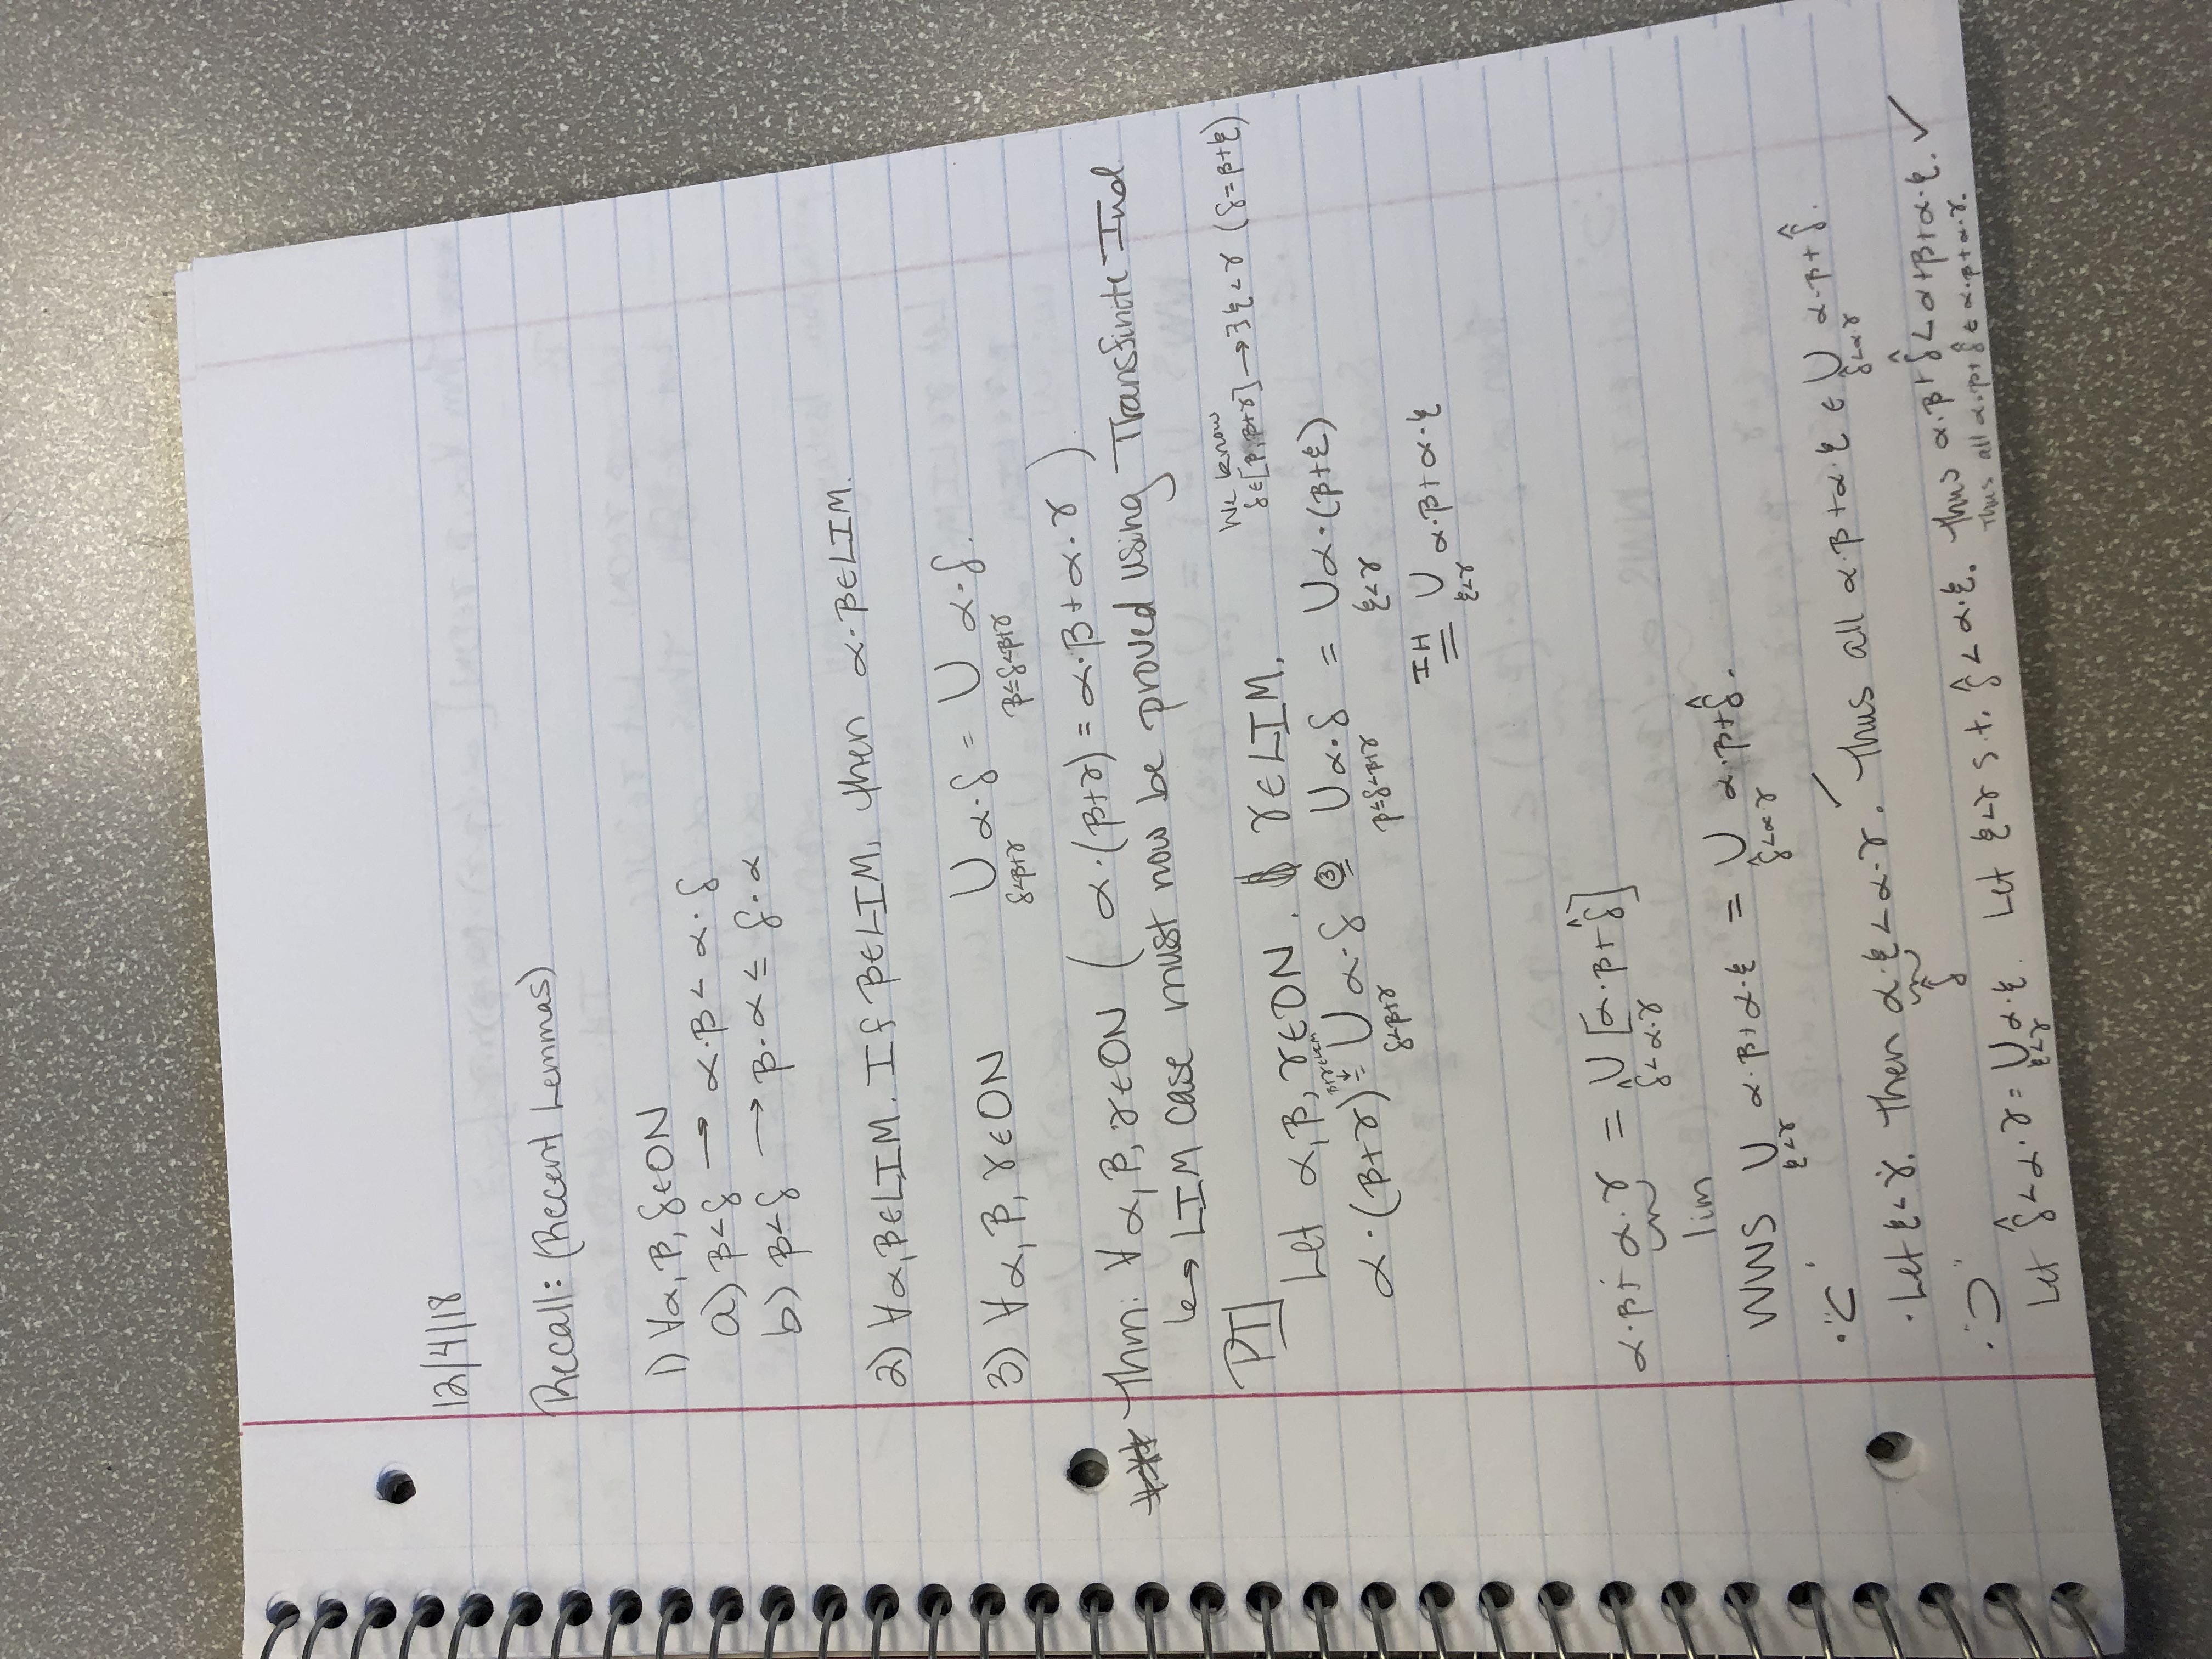 12/4/18
Recall: (Recent Lemmas)
1) ∀α, β, δ∈ON
a) β<δ → α·β < α·δ
b) β<δ → β·α ≤ δ·α
2) ∀α, β∈LIM. If β∈LIM, then α·β∈LIM.
3) ∀α, β, γ∈ON ⋃_{δ<β+γ} α·δ = ⋃_{β≤δ<β+γ} α·δ.
Thm: ∀α, β, γ∈ON ( α·(β+γ) = α·β + α·γ ).
↳ LIM case must now be proved using Transfinite Ind
Pf
We know
δ∈[β, β+γ] → ∃ξ<γ (δ=β+ξ)
Let α, β, γ∈ON. γ∈LIM.
β+γ∈LIM
↓
α·(β+γ) = ⋃_{δ<β+γ} α·δ =③ ⋃_{β≤δ<β+γ} α·δ = ⋃_{ξ<γ} α·(β+ξ)
IH = ⋃_{ξ<γ} α·β+α·ξ
α·β+α·γ = ⋃_{δ̂<α·γ} [α·β+δ̂]
lim
WWS ⋃_{ξ<γ} α·β+α·ξ = ⋃_{δ̂<α·γ} α·β+δ̂.
· "⊂"
· Let ξ<γ. Then α·ξ<α·γ. ✓ Thus all α·β+α·ξ ∈ ⋃_{δ̂<α·γ} α·β+δ̂.
δ̂
· "⊃"
Let δ̂<α·γ = ⋃_{ξ<γ} α·ξ. Let ξ<γ s.t. δ̂<α·ξ. Thus α·β+δ̂<α+β+α·ξ. ✓
Thus all α·β+δ̂ ∈ α·β+α·γ.